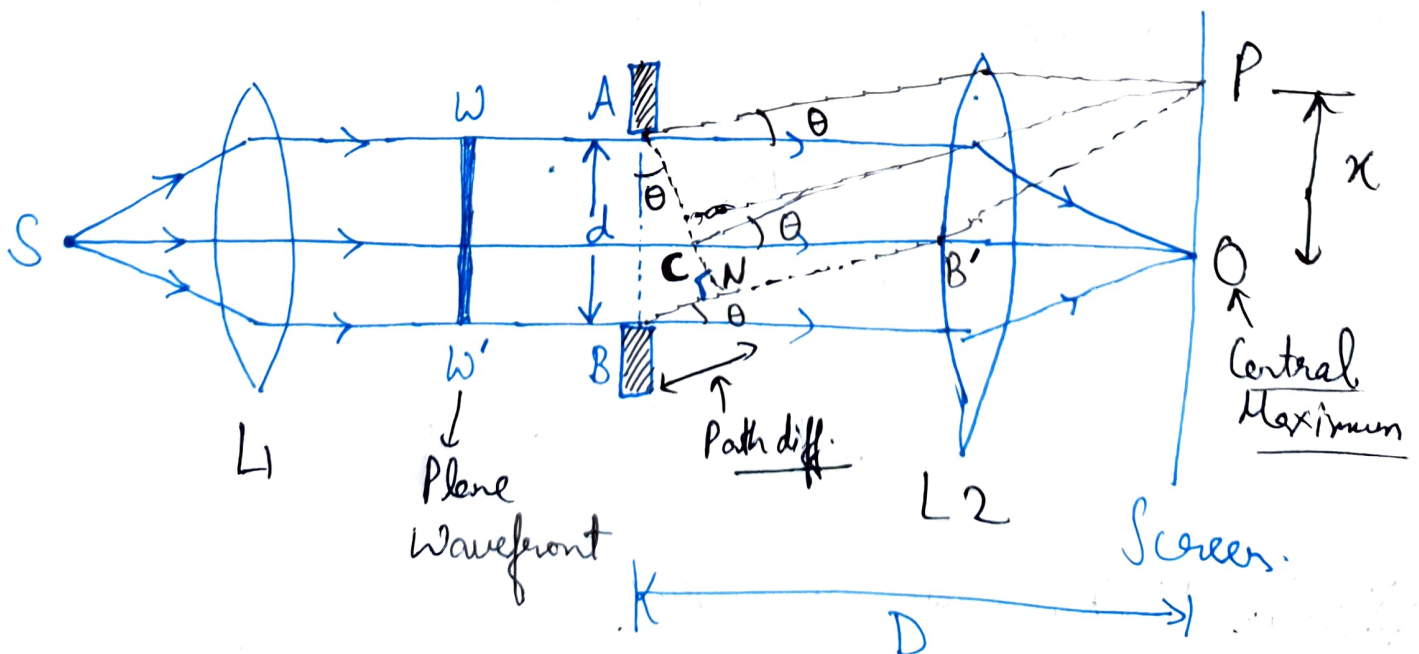 S
L1
W
W'
Plane
Wavefront
A
d
B
θ
θ
θ
θ
C
N
Path diff.
B'
L2
P
x
O
Central
Maximum
Screen.
D